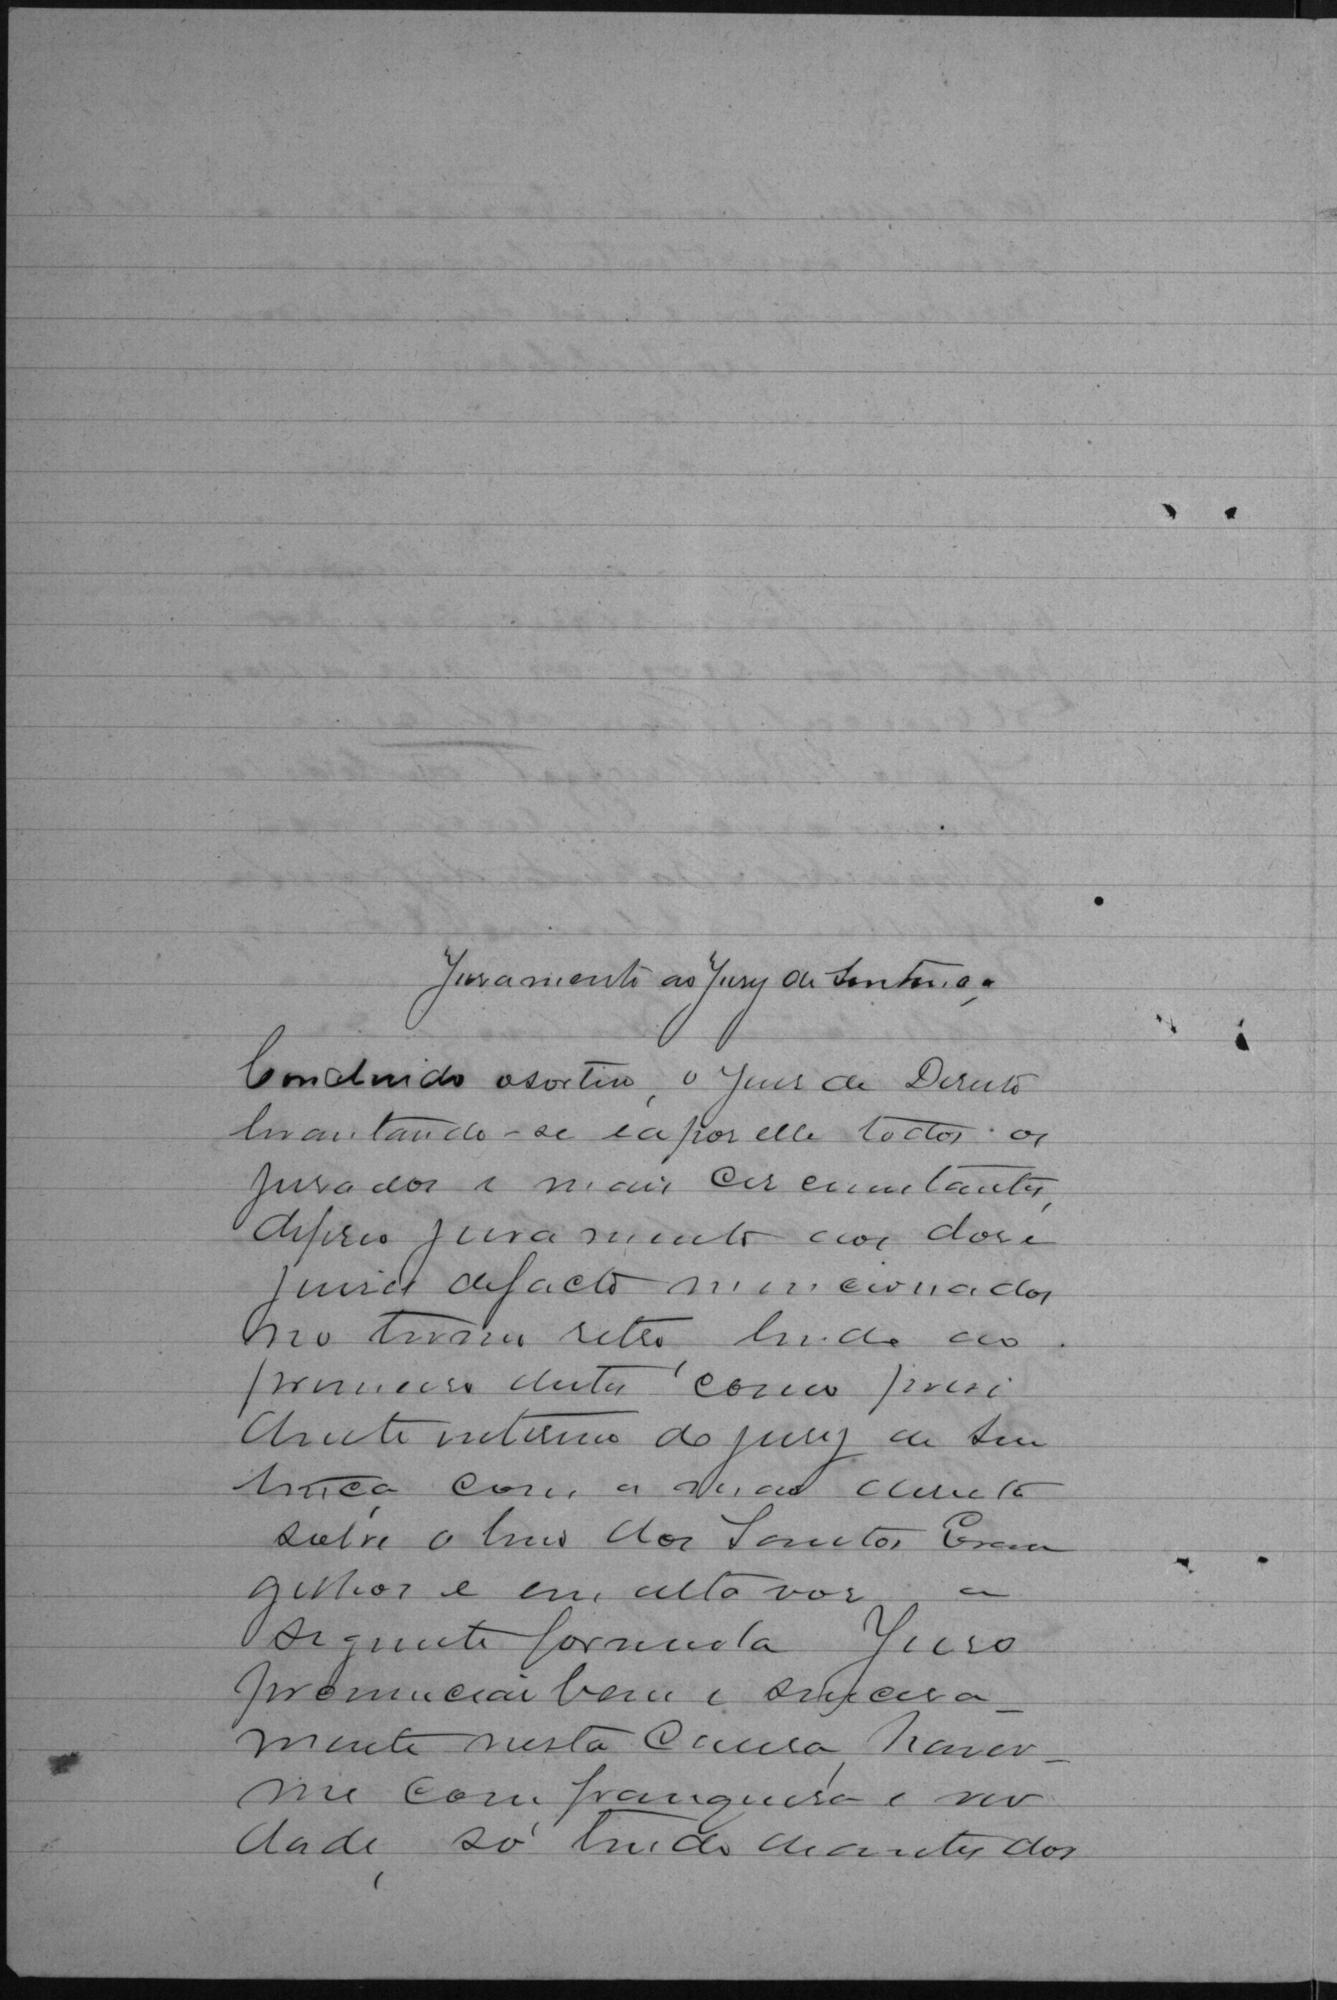 Juramento ao Jury de Sentença
Concluido o sorteio, o Juiz de Direito
levantando-se e apor elle todos os
jurados e mais circumstantes,
deferio juramento aos doze
juizes de facto mencionados
no termo retro lendo ao
primeiro destes como presi
dente interino do jury de Sen
tença com a mão direita
sobre o livro dos Santos Evan
gelhos e em alta voz a
seguinte formula Juro
pronunciar bem e sincera_
mente nesta causa, haver_
me com franqueza e ver
dade, só tendo diantes dos